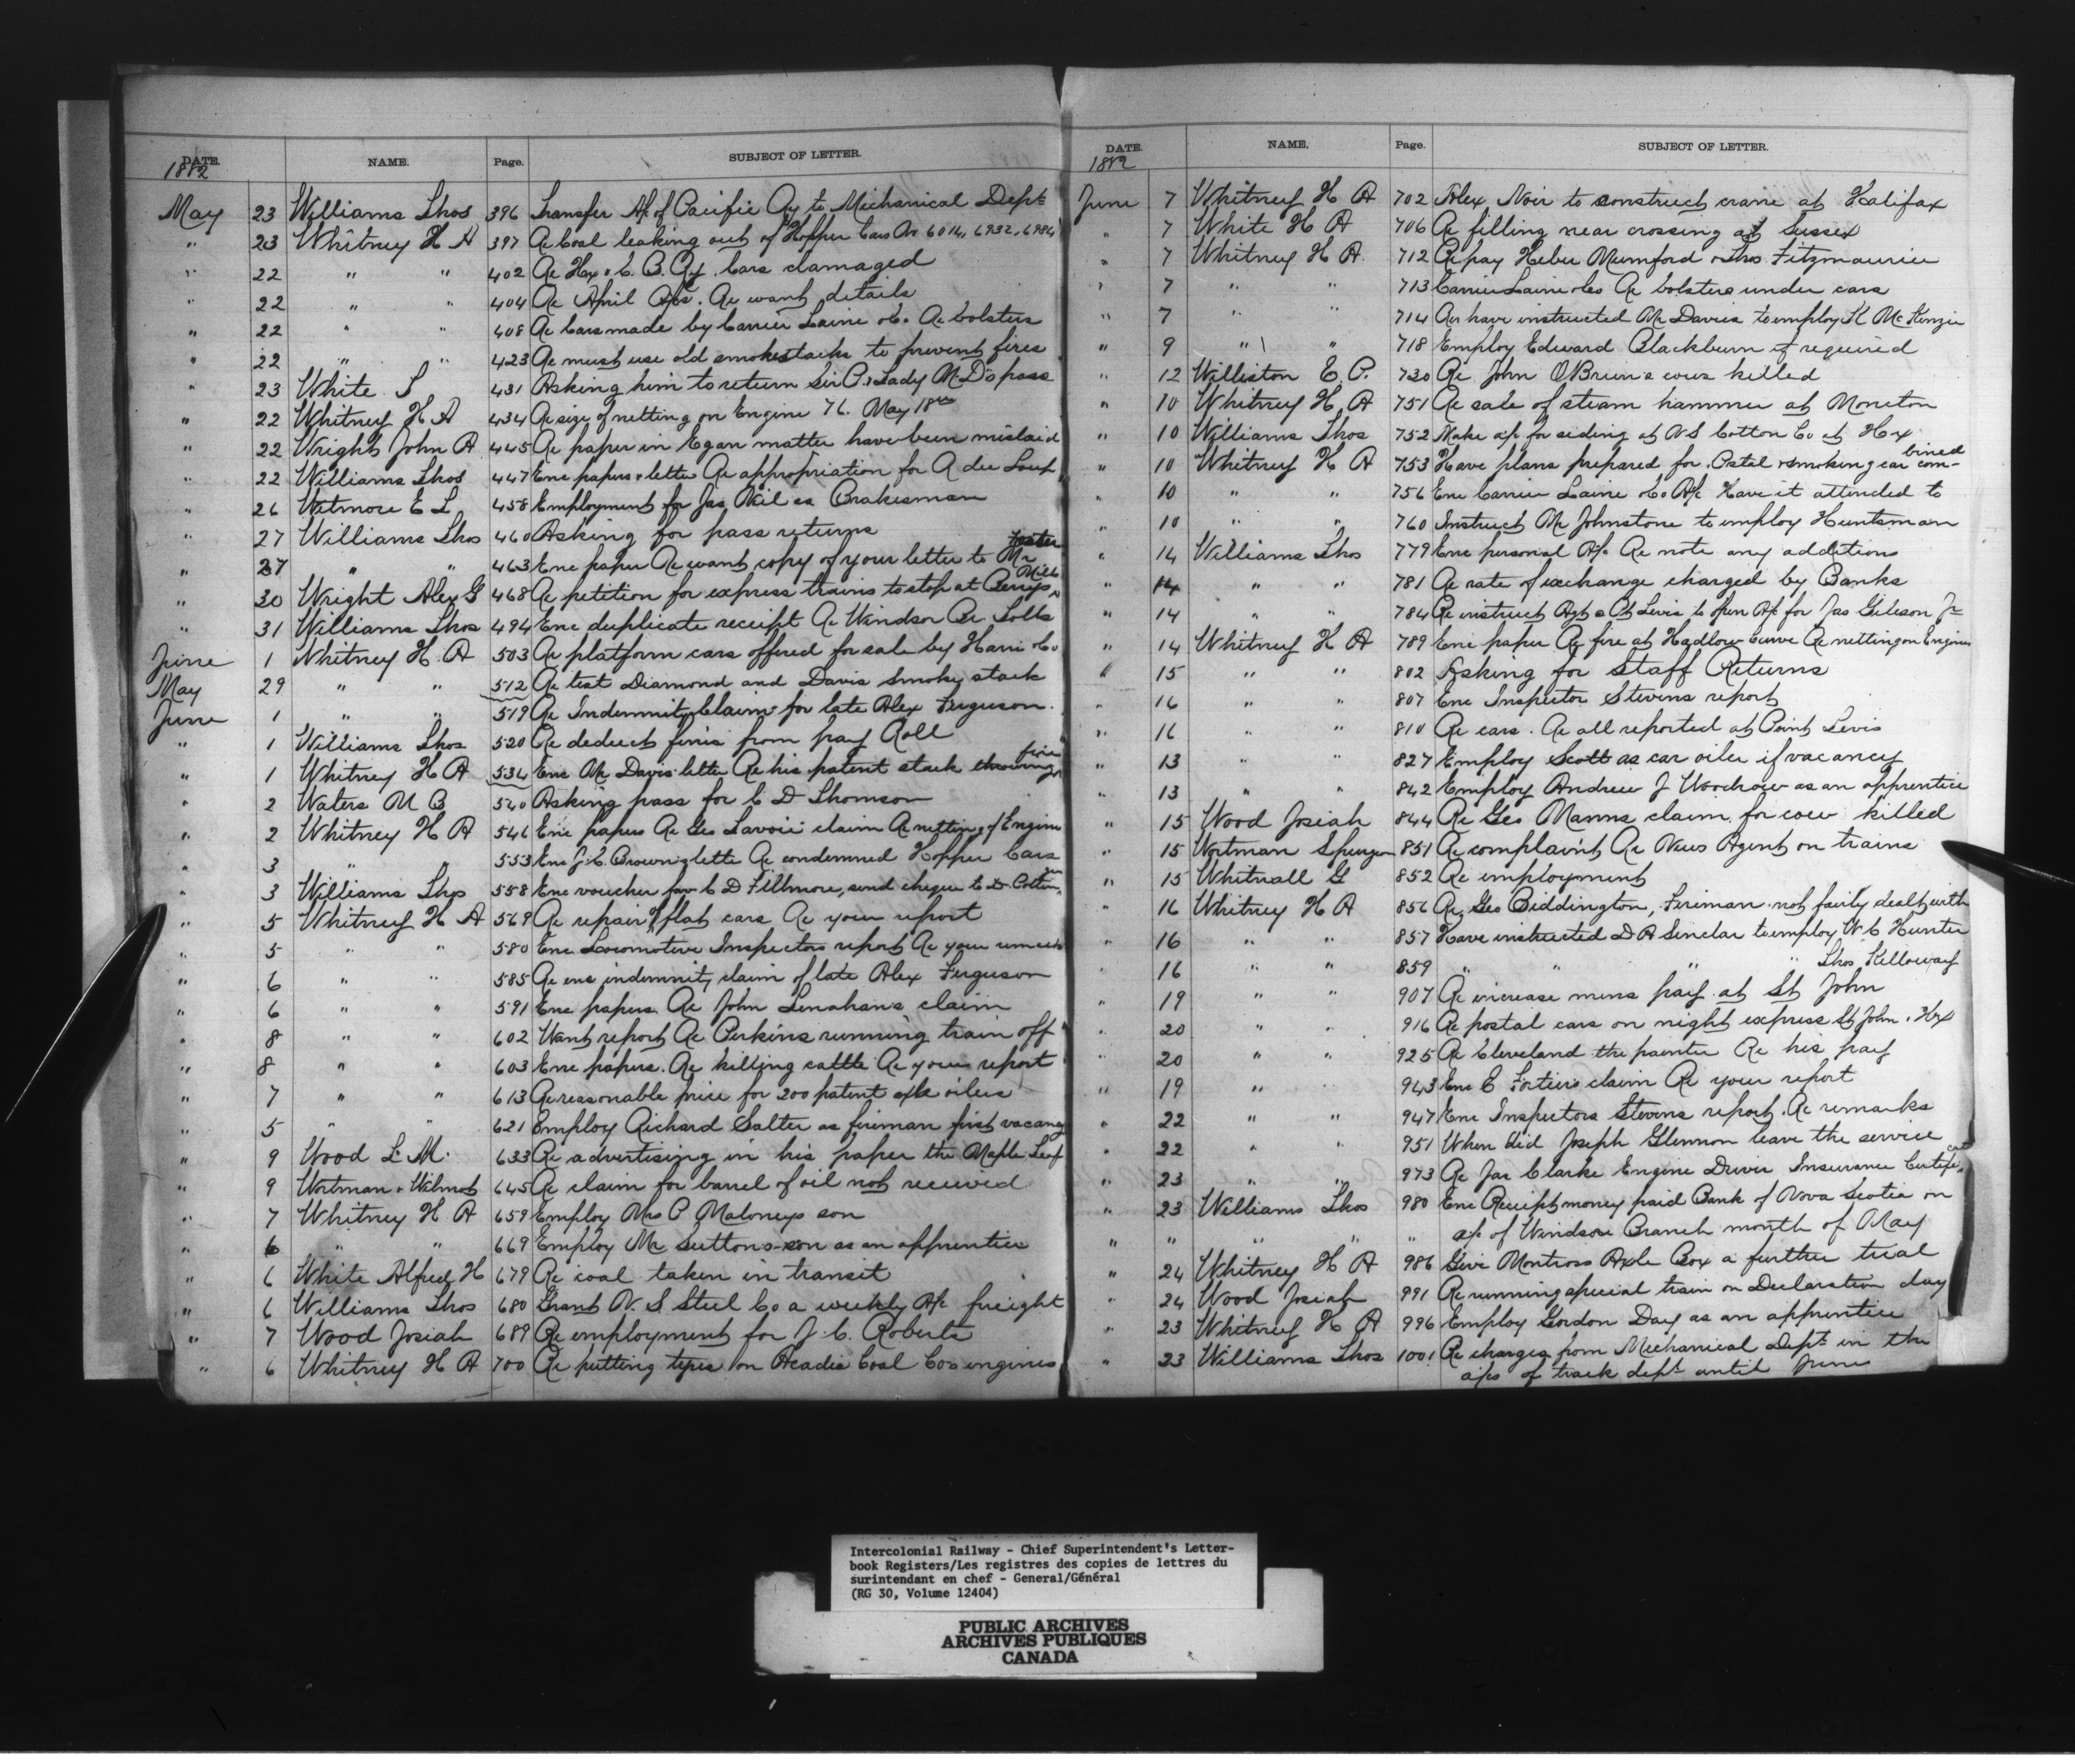 DATE. NAME. Page. SUBJECT OF LETTER.
1882
May 23 Williams Thos 396 Transfer A/c of Pacific Ry to Mechanical Dept
" 23 Whitney H A 397 Re Coal leaking out of Hopper Cars No 6014, 6932, 6984
" 22 " " 402 Re Hx & C. B. Ry. Cars damaged
" 22 " " 404 Re April A/cs. Re want details
" 22 " " 408 Re Cars made by Carrier Laine & Co. Re bolsters
" 22 " " 423 Re must use old smokestacks to prevent fires
" 23 White S 431 Asking him to return Sir P. & Lady McD's pass
" 22 Whitney H A 434 Re size of netting on Engine 76. May 18th
" 22 Wright John A 445 Re paper in Egan matter have been mislaid
" 22 Williams Thos 447 Enc papers & letter Re appropriation for R du Loup
" 26 Wetmore E L 458 Employment for Jas Neil as Brakesman
" 27 Williams Thos 460 Asking for pass returns
" 27 " " 463 Enc paper Re want copy of your letter to Mr Foster
" 30 Wright Alex G 468 Re petition for express trains to stop at Berrys Mills
" 31 Williams Thos 494 Enc duplicate receipt Re Windsor Br Tolls
June 1 Whitney H A 503 Re platform cars offered for sale by Harris & Co
May 29 " " 512 Re test Diamond and Davis Smoky stack
June 1 " " 519 Re Indemnity Claim for late Alex Ferguson.
" 1 Williams Thos 520 Re deduct fines from pay Roll
" 1 Whitney H A 534 Enc Mr Davis letter Re his patent stack throwing fire
" 2 Waters M B 540 Asking pass for C D Thomson
" 2 Whitney H A 546 Enc papers Re Geo Lavoie claim Re netting of Engine
" 3 " " 553 Enc J. C. Brown's letter Re condemned Hopper Cars
" 3 Williams Thos 558 Enc voucher fav C D Fillmore, send cheque to D Pottin
" 5 Whitney H A 569 Re repair of flat cars Re your report
" 5 " " 580 Enc Locomotive Inspectors report Re your remarks
" 6 " " 585 Re enc indemnity claim of late Alex Ferguson
" 6 " " 591 Enc papers Re John Lenahans claim
" 8 " " 602 Want report Re Perkins running train off
" 8 " " 603 Enc papers. Re killing cattle Re your report
" 7 " " 613 Re reasonable price for 200 patent axle oilers
" 5 " " 621 Employ Richard Salter as fireman first vacancy
" 9 Wood L. M. 633 Re advertising in his paper the Maple Leaf
" 9 Wortman & Wilmot 645 Re claim for barrel of oil not received
" 7 Whitney H A 659 Employ Mrs P Maloneys son
" 6 " " 669 Employ Mr Suttons son as an apprentice
" 6 White Alfred H 679 Re coal taken in transit
" 6 Williams Thos 680 Grant N. S. Steel Co a weekly A/c freight
" 7 Wood Josiah 689 Re employment for J. C. Roberts
" 6 Whitney H A 700 Re putting tyres on Acadia Coal Cos engines
DATE. NAME. Page. SUBJECT OF LETTER.
1882
June 7 Whitney H A 702 Alex Noir to construct crane at Halifax
" 7 White H A 706 Re filling near crossing at Sussex
" 7 Whitney H A 712 Re pay Heber Mumford & Thos Fitzmaurice
" 7 " " 713 Carrier Laine & Co Re bolsters under cars
" 7 " " 714 Re have instructed Mr Davies to employ K McKenzie
" 9 " " 718 Employ Edward Blackburn if required
" 12 Williston E. P. 730 Re John OBrien's cows killed
" 10 Whitney H A 751 Re sale of steam hammer at Moncton
" 10 Williams Thos 752 Make a/c for siding at N S Cotton Co at Hx
" 10 Whitney H A 753 Have plans prepared for Postal & smoking car combined
" 10 " " 756 Enc Carrier Laine & Co A/c Have it attended to
" 10 " " 760 Instruct Mr Johnstone to employ Huntsman
" 14 Williams Thos 779 Enc personal A/c Re note any additions
" 14 " " 781 Re rate of exchange charged by Banks
" 14 " " 784 Re instruct Agt a Pt Levis to open A/c for Jas Gibson Jr
" 14 Whitney H A 789 Enc paper Re fire at Hadlow curve Re netting on Engines
" 15 " " 802 Asking for Staff Returns
" 16 " " 807 Enc Inspector Stevens report
" 16 " " 810 Re cars. Re all reported at Point Levis
" 13 " " 827 Employ Scott as car oiler if vacancy
" 13 " " 842 Employ Andrew J Woodrow as an apprentice
" 15 Wood Josiah 844 Re Geo Manns claim for cow killed
" 15 Wortman Spurgeon 851 Re complaint Re News Agent on trains
" 15 Whitnall G 852 Re employment
" 16 Whitney H A 856 Re Geo Biddington, Fireman not fairly dealt with
" 16 " " 857 Have instructed D A Sinclar to employ W C Hunter
" 16 " " 859 " " " " Thos Killoway
" 19 " " 907 Re increase mens pay at St John
" 20 " " 916 Re postal cars on night express St John & Hx
" 20 " " 925 Re Cleveland the painter Re his pay
" 19 " " 943 Enc E Fortiers claim Re your report
" 22 " " 947 Enc Inspectors Stevens report. Re remarks
" 22 " " 951 When did Joseph Glennon leave the service
" 23 " " 973 Re Jas Clarke Engine Driver Insurance Certificate
" 23 Williams Thos 980 Enc Receipt money paid Bank of Nova Scotia on
" " " " " a/c of Windsor Branch month of May
" 24 Whitney H A 986 Give Montross Axle Box a further trial
" 24 Wood Josiah 991 Re running special train on Declaration day
" 23 Whitney H A 996 Employ Gordon Day as an apprentice
" 23 Williams Thos 1001 Re charges from Mechanical Dept in the
a/cs of track dept until June
Intercolonial Railway - Chief Superintendent's Letter-
book Registers/Les registres des copies de lettres du
surintendant en chef - General/Général
(RG 30, Volume 12404)
PUBLIC ARCHIVES
ARCHIVES PUBLIQUES
CANADA